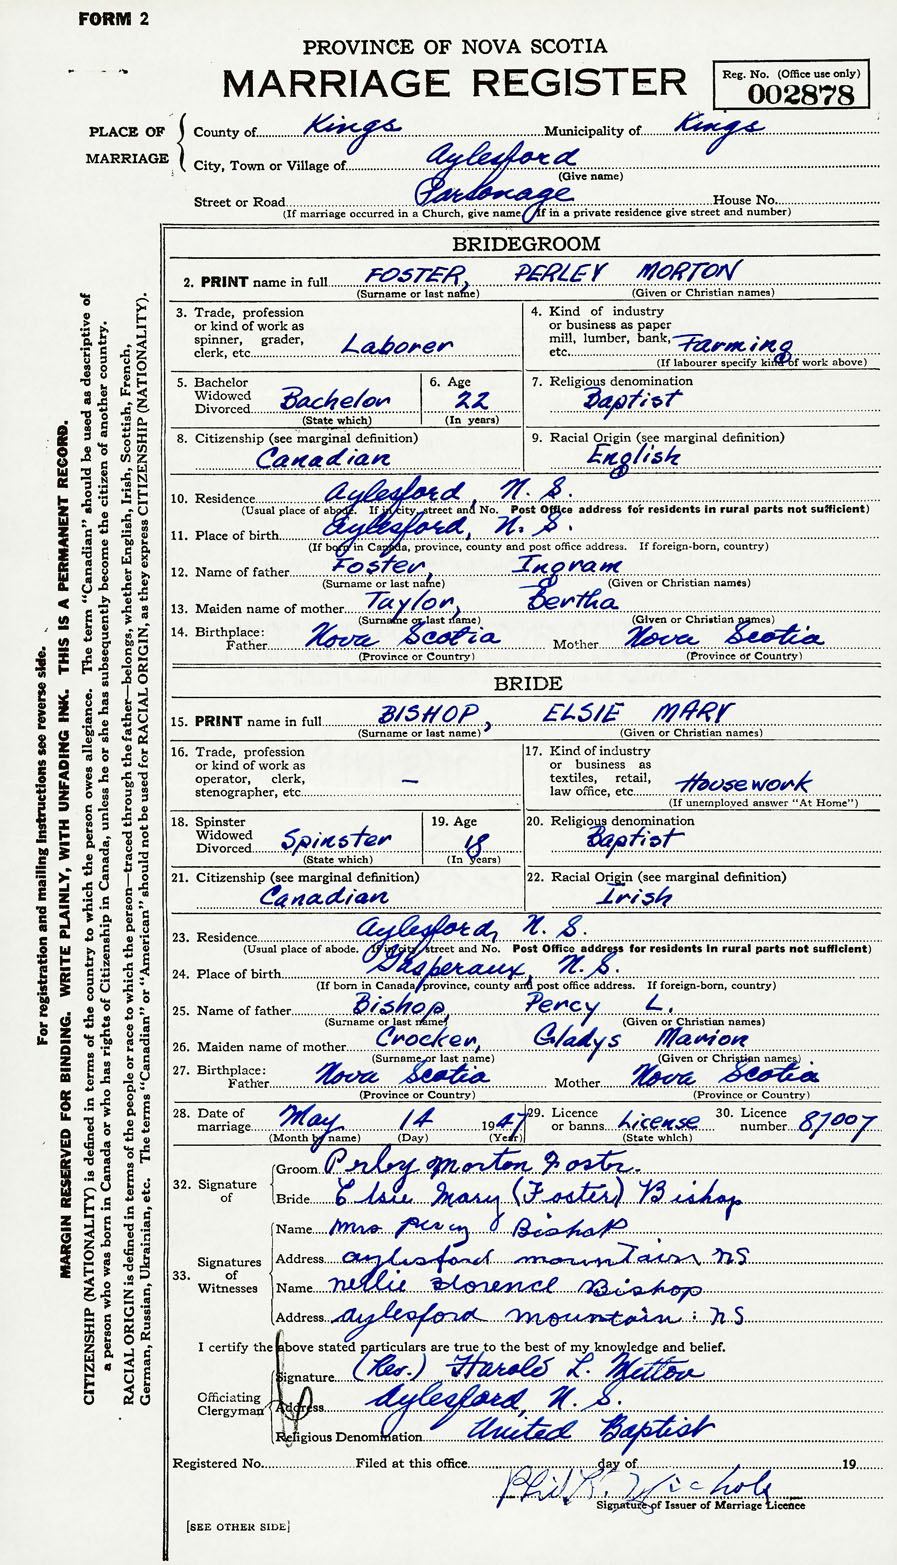 FORM 2
PROVINCE OF NOVA SCOTIA
MARRIAGE REGISTER
Reg. No. (Office use only)
002878
PLACE OF MARRIAGE
County of Kings Municipality of Kings
City, Town or Village of Aylesford
(Give name)
Street or Road Parsonage House No.
(If marriage occurred in a Church, give name. If in a private residence give street and number)
BRIDEGROOM
2. PRINT name in full FOSTER, PERLEY MORTON
(Surname or last name) (Given or Christian names)
3. Trade, profession
or kind of work as
spinner, grader,
clerk, etc. Laborer
4. Kind of industry
or business as paper
mill, lumber, bank,
etc. Farming
(If labourer specify kind of work above)
5. Bachelor
Widowed
Divorced Bachelor
(State which)
6. Age
22
(In years)
7. Religious denomination
Baptist
8. Citizenship (see marginal definition)
Canadian
9. Racial Origin (see marginal definition)
English
10. Residence Aylesford, N. S.
(Usual place of abode. If in city, street and No. Post Office address for residents in rural parts not sufficient)
11. Place of birth Aylesford, N. S.
(If born in Canada, province, county and post office address. If foreign-born, country)
12. Name of father Foster, Ingram
(Surname or last name) (Given or Christian names)
13. Maiden name of mother Taylor, Bertha
(Surname or last name) (Given or Christian names)
14. Birthplace:
Father Nova Scotia Mother Nova Scotia
(Province or Country) (Province or Country)
BRIDE
15. PRINT name in full BISHOP, ELSIE MARY
(Surname or last name) (Given or Christian names)
16. Trade, profession
or kind of work as
operator, clerk,
stenographer, etc. —
17. Kind of industry
or business as
textiles, retail,
law office, etc. Housework
(If unemployed answer "At Home")
18. Spinster
Widowed
Divorced Spinster
(State which)
19. Age
18
(In years)
20. Religious denomination
Baptist
21. Citizenship (see marginal definition)
Canadian
22. Racial Origin (see marginal definition)
Irish
23. Residence Aylesford, N. S.
(Usual place of abode. If in city, street and No. Post Office address for residents in rural parts not sufficient)
24. Place of birth Gasperaux, N. S.
(If born in Canada province, county and post office address. If foreign-born, country)
25. Name of father Bishop, Percy L.
(Surname or last name) (Given or Christian names)
26. Maiden name of mother Crocker, Gladys Marion
(Surname or last name) (Given or Christian names)
27. Birthplace:
Father Nova Scotia Mother Nova Scotia
(Province or Country) (Province or Country)
28. Date of
marriage May 14 1947
(Month by name) (Day) (Year)
29. Licence
or banns License
(State which)
30. Licence
number 87007
32. Signature
of
Groom Perley Morton Foster.
Bride Elsie Mary (Foster) Bishop
33. Signatures
of
Witnesses
Name Mrs Percy Bishop
Address aylesford mountain, NS
Name nellie Florence Bishop
Address aylesford mountain: NS
I certify the above stated particulars are true to the best of my knowledge and belief.
Officiating
Clergyman
Signature (Rev.) Harold L.
Address Aylesford, N. S.
Religious Denomination United Baptist
Registered No. Filed at this office day of 19
Nichols
Signature of Issuer of Marriage Licence
[SEE OTHER SIDE]
For registration and mailing instructions see reverse side.
MARGIN RESERVED FOR BINDING. WRITE PLAINLY, WITH UNFADING INK. THIS IS A PERMANENT RECORD.
CITIZENSHIP (NATIONALITY) is defined in terms of the country to which the person owes allegiance. The term "Canadian" should be used as descriptive of
a person who was born in Canada or who has rights of Citizenship in Canada, unless he or she has subsequently become the citizen of another country.
RACIAL ORIGIN is defined in terms of the people or race to which the person—traced through the father—belongs, whether English, Irish, Scottish, French,
German, Russian, Ukrainian, etc. The terms "Canadian" or "American" should not be used for RACIAL ORIGIN, as they express CITIZENSHIP (NATIONALITY).